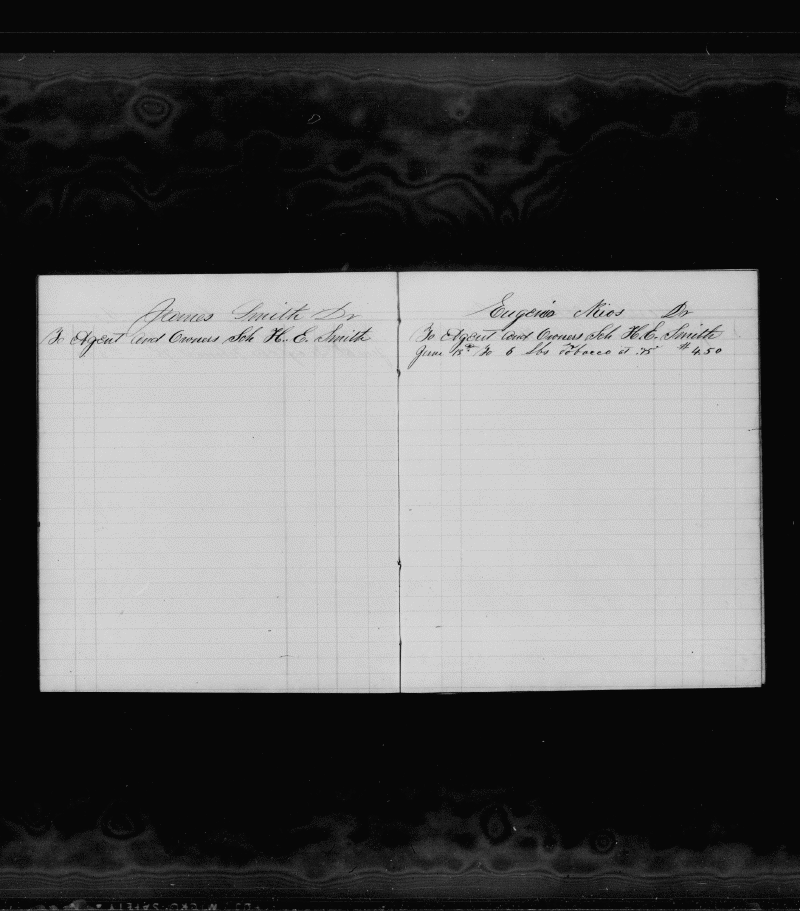 James Smith Dr
To Agent and Owners Sch H. E. Smith
Eugenio Nios Dr
To Agent and Owners Sch H. E. Smith
June 15th To 6 lbs Tobacco at .75 $ 4.50